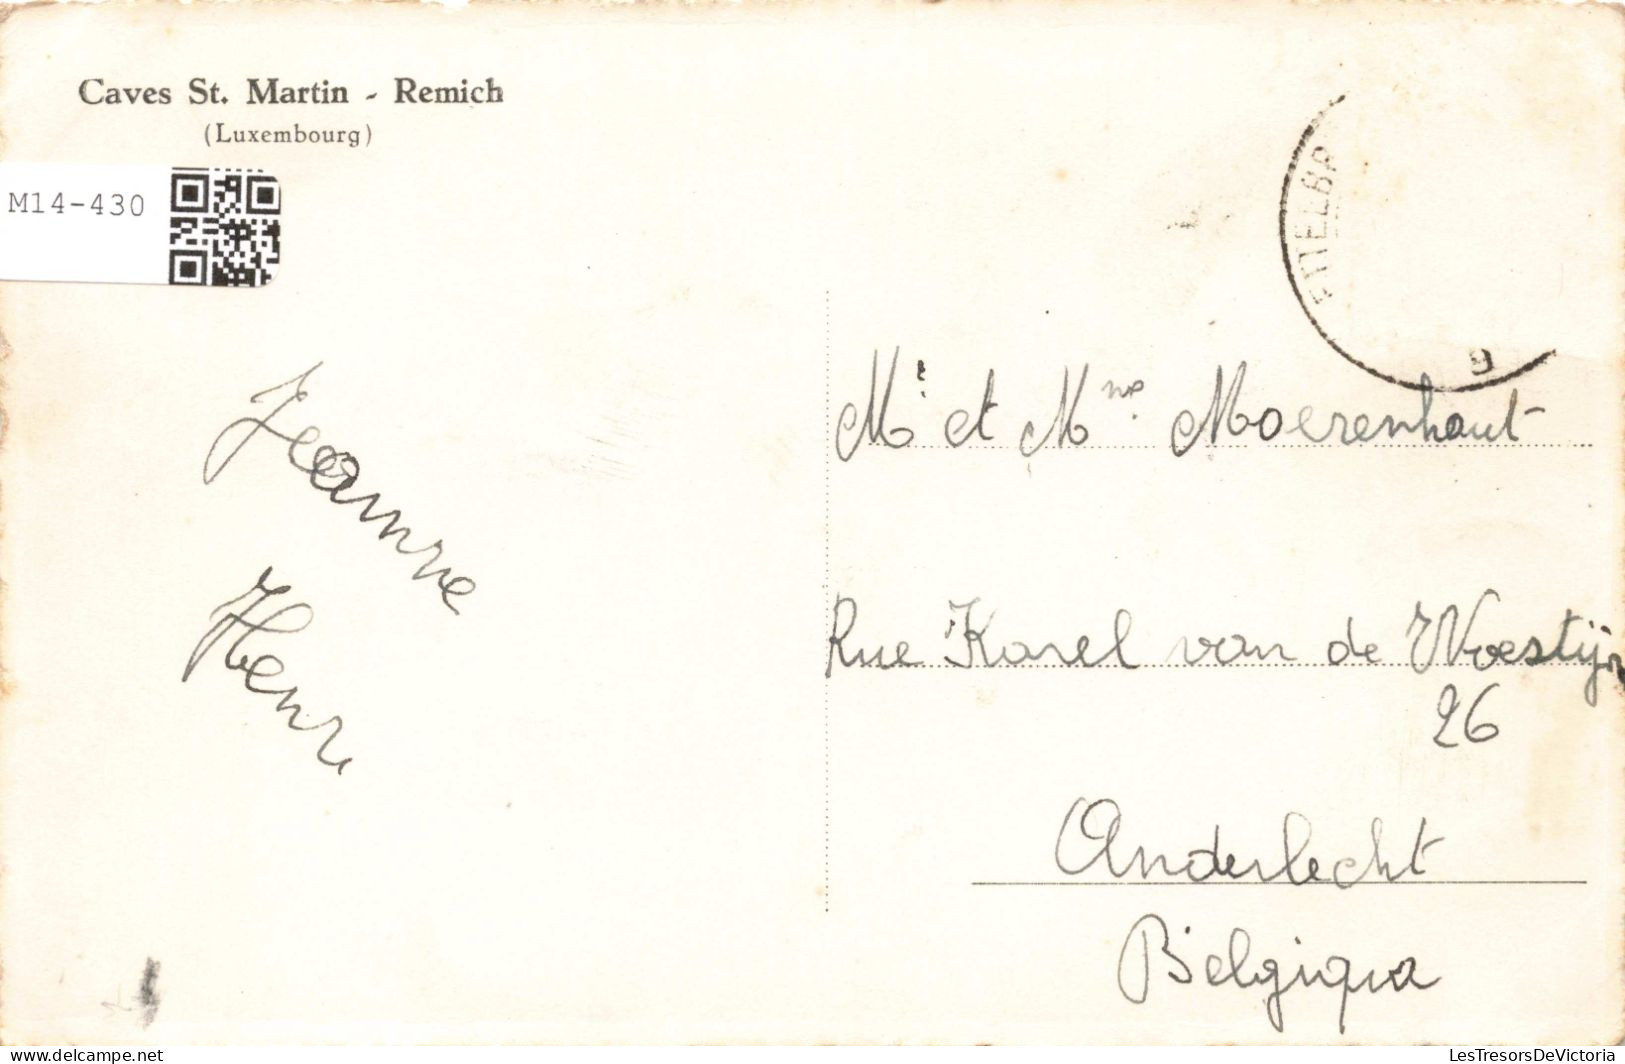 Caves St. Martin - Remich
(Luxembourg)
M14-430
ETTELBR
9
Jeanne
Henri
Mr et Mme Moerenhaut
Rue Karel van de Woestijn
26
Anderlecht
Belgiqua
www.delcampe.net
LesTresorsDeVictoria